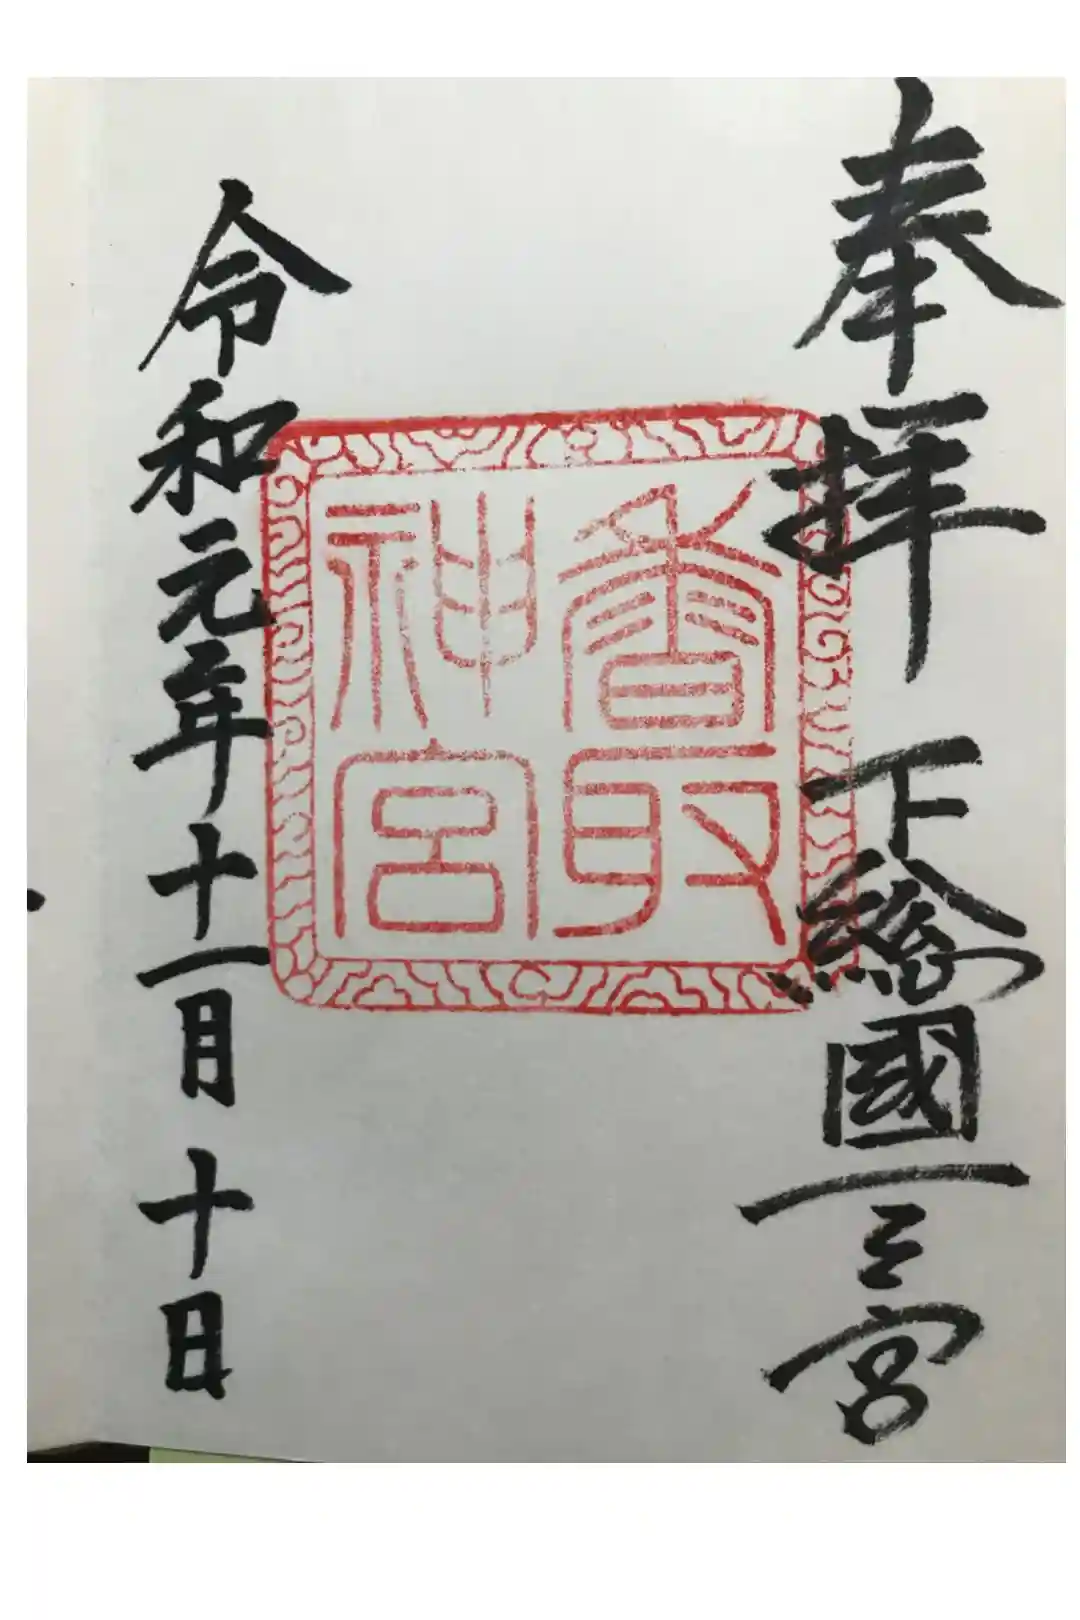 奉拝 下總國一之宮
香取
神宮
令和元年十一月十日